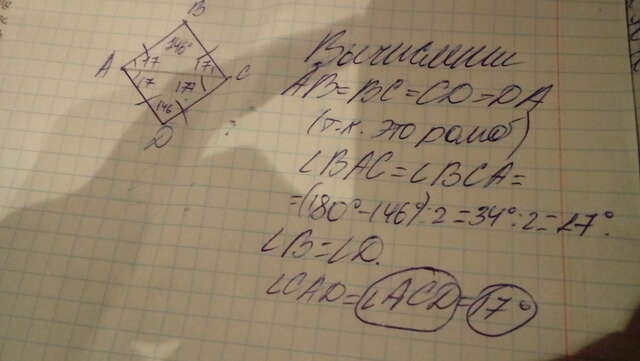 B
146°
A
17
17
17
17
C
146
D
Вычисления
AB=BC=CD=DA
(т.к. это ромб)
∠BAC=∠BCA=
=(180°-146°):2=34°:2=17°.
∠B=∠D.
∠CAD=∠ACD=17°